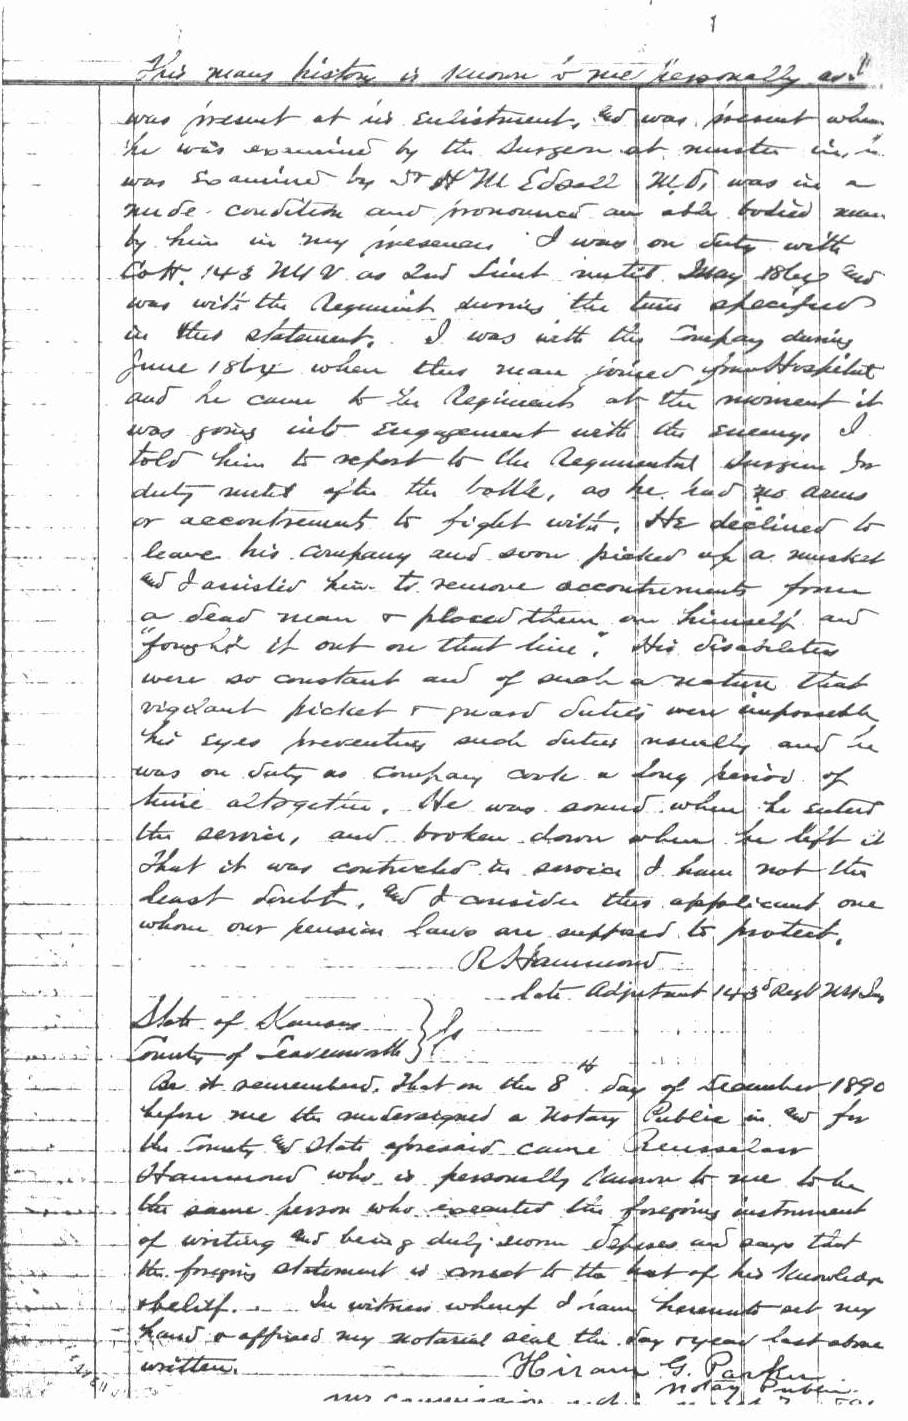 This mans history is known to me personally as I
was present at his enlistment, and was present when
he was examined by the Surgeon at muster in, he
was examined by Dr H M Edsall M.D. was in a
nude condition and pronounced an able bodied man
by him in my presence I was on duty with
Co H. 143 NYV as 2nd Lieut until May 1864 and
was with the Regiment during the time specified
in this statement. I was with the Company during
June 1864 when this man joined from Hospital
and he came to the Regiment at the moment it
was going into engagement with the enemy. I
told him to report to the Regimental Surgeon for
duty until after the battle, as he had no arms
or accoutrements to fight with. He declined to
leave his company and soon picked up a musket
and I assisted him to remove accoutrements from
a dead man & placed them on himself and
"fought it out on that line". His disabilities
were so constant and of such a nature that
vigilant picket & guard duties were impossible
his eyes preventing such duties usually and he
was on duty as company cook a long period of
time altogether. He was sound when he entered
the service, and broken down when he left it
That it was contracted in service I have not the
least doubt, and I consider this applicant one
whom our pension laws are supposed to protect.
R Hammond
late Adjutant 143d Regt NY Inf
State of Kansas
County of Leavenworth } ss
Be it remembered, That on the 8th day of December 1890
before me the undersigned a Notary Public in and for
the County and State aforesaid came Rensselaer
Hammond who is personally known to me to be
the same person who executed the foregoing instrument
of writing and being duly sworn deposes and says that
the foregoing statement is correct to the best of his knowledge
& belief. In witness whereof I have hereunto set my
hand & affixed my notarial seal the day & year last above
written. Hiram G. Parker
Notary Public
my commission